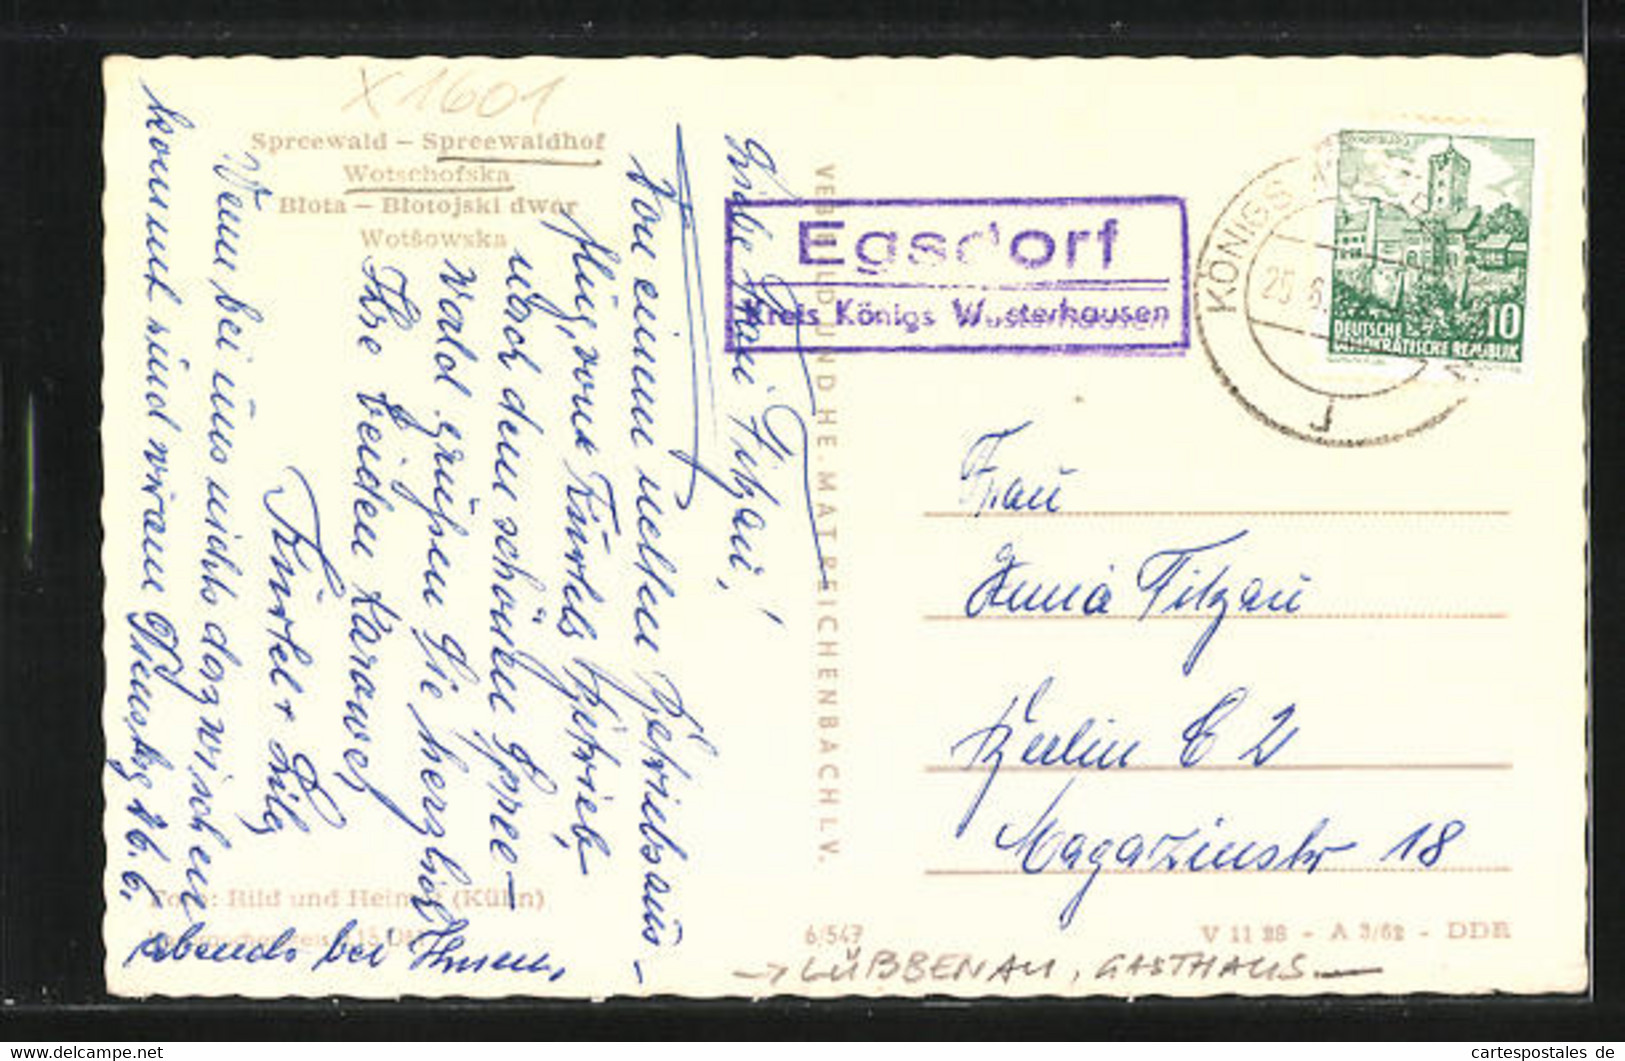 X 1601
Spreewald – Spreewaldhof
Wotschofska
Błota – Błotojski dwór
Wotšowska
Liebe Frau Fitzau!
Von einem netten Betriebsaus-
flug, von Kurtels Betrieb,
nach dem schönen Spree-
wald grüßen Sie herzlich
Ihre beiden
Kurtel + Lilly
Wenn bei uns nichts dazwischen
kommt sind wir am Dienstag 26.6.
abends bei Ihnen.
Foto: Bild und Heimat (Kühn)
VEB BILD UND HEIMAT REICHENBACH I. V.
Egsdorf
Kreis Königs Wusterhausen
KÖNIGS
25.6.
DEUTSCHE
DEMOKRATISCHE REPUBLIK
10
Frau
Anna Fitzau
Berlin C 2
Magazinstr 18
6/547
V 11 28 - A 3/62 - DDR
→ LÜBBENAU, GASTHAUS
www.cartespostales.de
cartespostales de